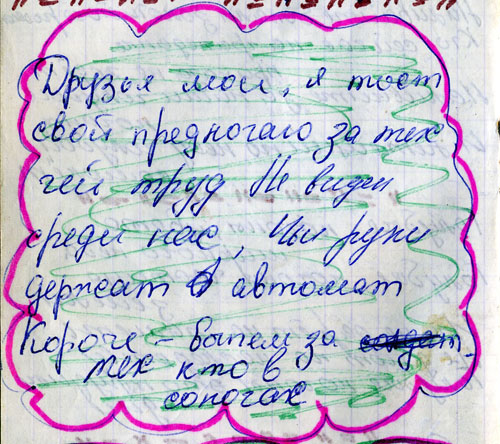 Друзья мои, я тост
свой предлогаю за тех
чей труд Не виден
среди нас, Чьи руки
держат автомат
Короче – выпем за
тех кто в
сопогах